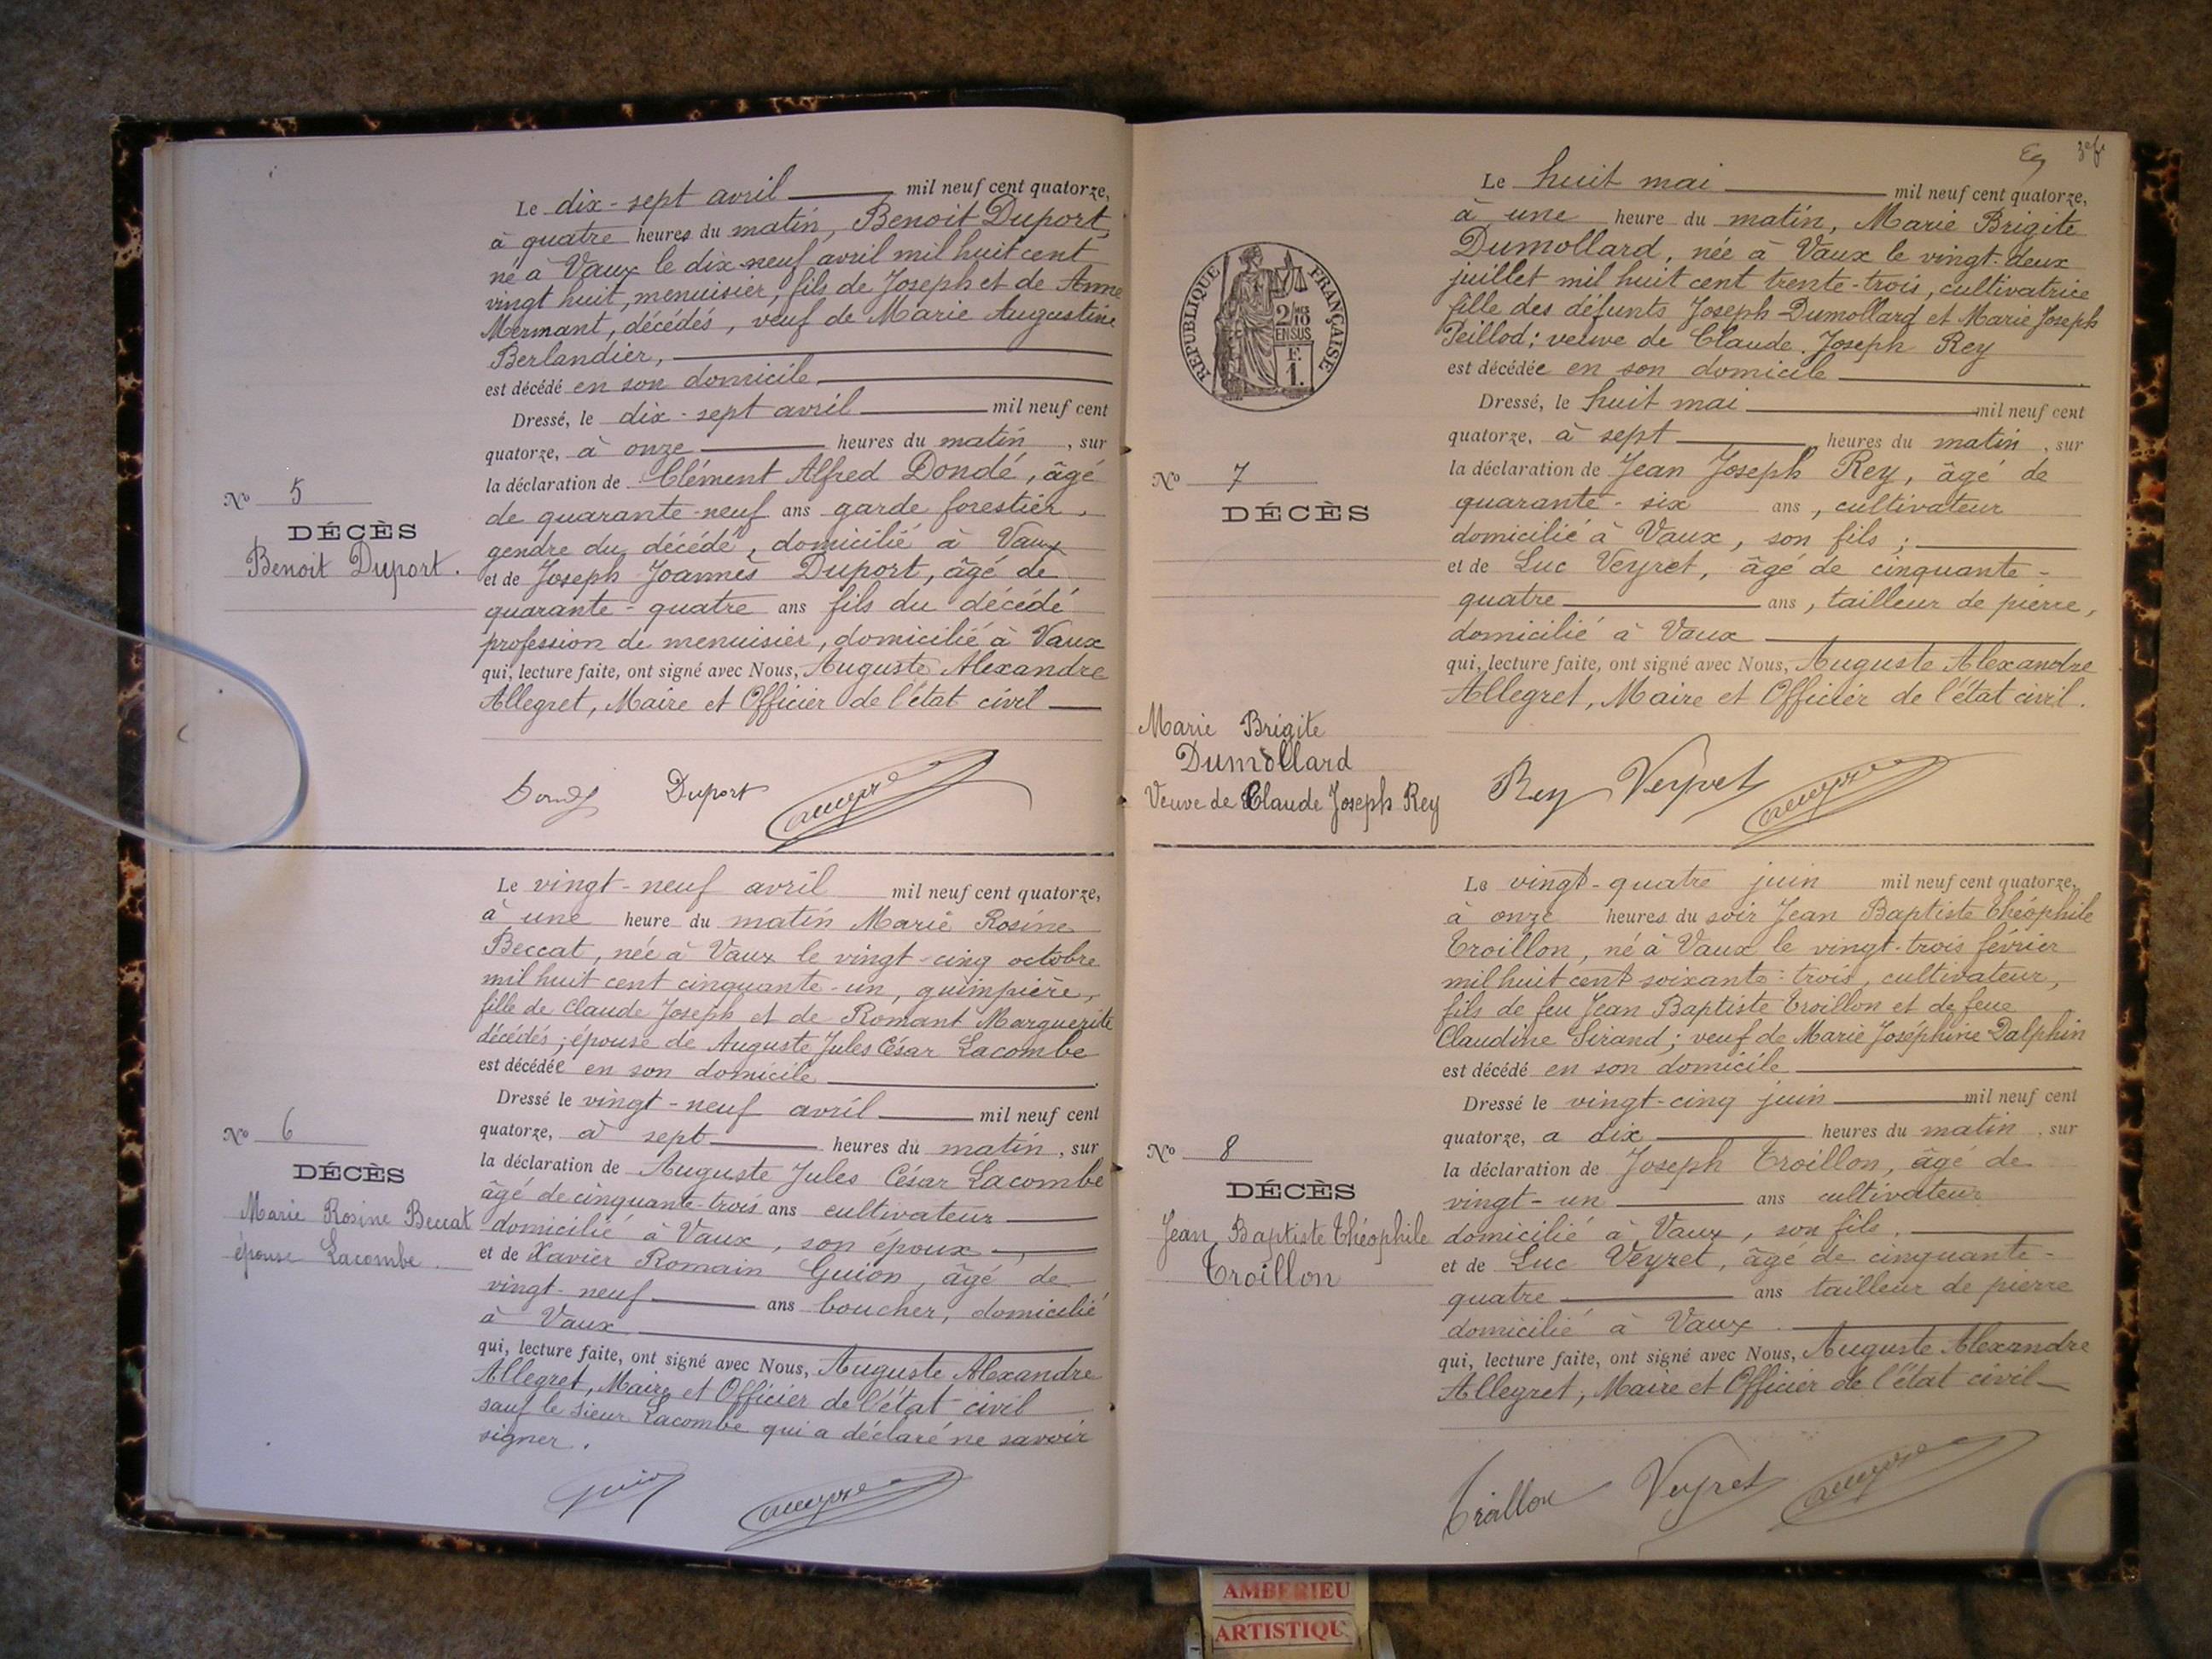 Le dix-sept avril mil neuf cent quatorze,
à quatre heures du matin, Benoit Duport,
né à Vaux le dix-neuf avril mil huit cent
vingt huit, menuisier, fils de Joseph et de Anne
Mermant, décédés, veuf de Marie Augustine
Berlandier,
est décédé en son domicile
Dressé, le dix-sept avril mil neuf cent
quatorze, à onze heures du matin, sur
la déclaration de Clément Alfred Dondé, âgé
de quarante-neuf ans garde forestier,
gendre du décédé, domicilié à Vaux
et de Joseph Joannès Duport, âgé de
quarante-quatre ans fils du décédé
profession de menuisier, domicilié à Vaux
qui, lecture faite, ont signé avec Nous, Auguste Alexandre
Allegret, Maire et Officier de l'état civil
No 5
DÉCÈS
Benoit Duport.
Duport
Le vingt-neuf avril mil neuf cent quatorze,
à une heure du matin Marie Rosine
Beccat, née à Vaux le vingt-cinq octobre
mil huit cent cinquante-un, guimpière,
fille de Claude Joseph et de Romant Marguerite
décédés; épouse de Auguste Jules César Lacombe
est décédée en son domicile
Dressé le vingt-neuf avril mil neuf cent
quatorze, à sept heures du matin, sur
la déclaration de Auguste Jules César Lacombe
âgé de cinquante-trois ans cultivateur
domicilié à Vaux, son époux,
et de Xavier Romain Guion, âgé de
vingt-neuf ans boucher, domicilié
à Vaux
qui, lecture faite, ont signé avec Nous, Auguste Alexandre
Allegret, Maire et Officier de l'état civil
sauf le sieur Lacombe qui a déclaré ne savoir
signer.
No 6
DÉCÈS
Marie Rosine Beccat
épouse Lacombe.
3e f
Le huit mai mil neuf cent quatorze,
à une heure du matin, Marie Brigite
Dumollard, née à Vaux le vingt-deux
juillet mil huit cent trente-trois, cultivatrice
fille des défunts Joseph Dumollard et Marie Joseph
Peillod; veuve de Claude Joseph Rey
est décédée en son domicile
Dressé, le huit mai mil neuf cent
quatorze, à sept heures du matin, sur
la déclaration de Jean Joseph Rey, âgé de
quarante-six ans, cultivateur
domicilié à Vaux, son fils;
et de Luc Veyret, âgé de cinquante-
quatre ans, tailleur de pierre,
domicilié à Vaux
qui, lecture faite, ont signé avec Nous, Auguste Alexandre
Allegret, Maire et Officier de l'état civil.
REPUBLIQUE FRANÇAISE
2/10 EN SUS
F. 1.
No 7
DÉCÈS
Marie Brigite
Dumollard
Veuve de Claude Joseph Rey
Rey Veyret
Le vingt-quatre juin mil neuf cent quatorze,
à onze heures du soir Jean Baptiste Théophile
Troillon, né à Vaux le vingt-trois février
mil huit cent soixante-trois, cultivateur,
fils de feu Jean Baptiste Troillon et de feue
Claudine Sirand; veuf de Marie Joséphine Dalphin
est décédé en son domicile
Dressé le vingt-cinq juin mil neuf cent
quatorze, a dix heures du matin, sur
la déclaration de Joseph Troillon, âgé de
vingt-un ans cultivateur
domicilié à Vaux, son fils,
et de Luc Veyret, âgé de cinquante-
quatre ans tailleur de pierre
domicilié à Vaux.
qui, lecture faite, ont signé avec Nous, Auguste Alexandre
Allegret, Maire et Officier de l'état civil
No 8
DÉCÈS
Jean Baptiste Théophile
Troillon
Troillon Veyret
AMBERIEU
ARTISTIQU